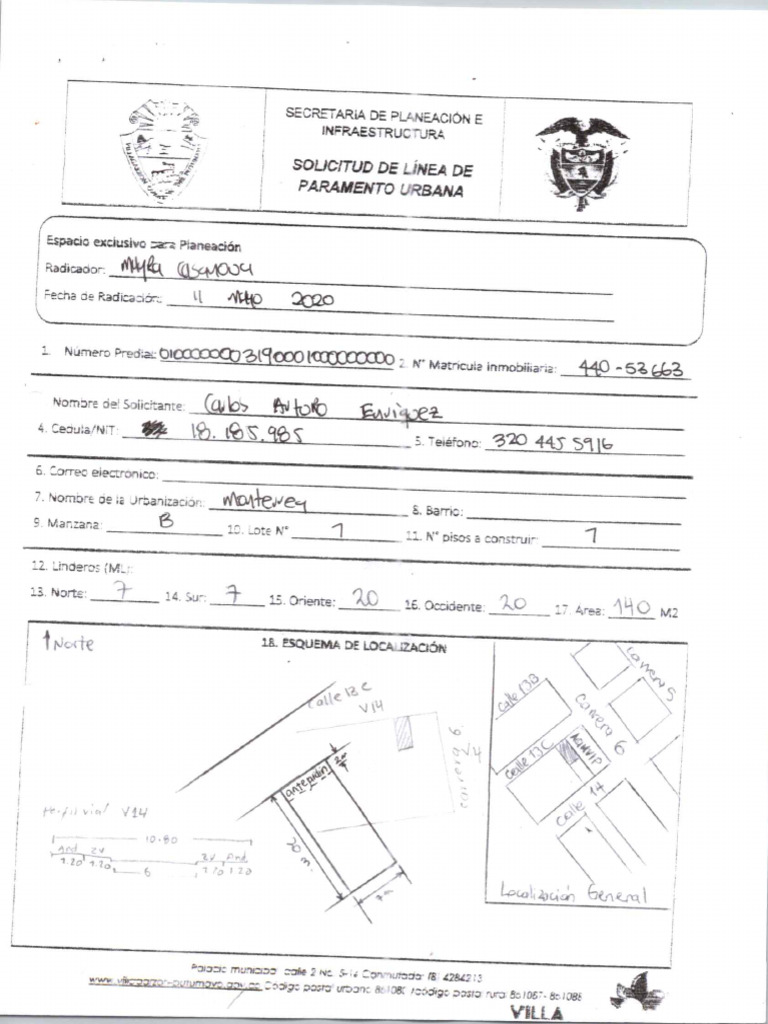 SECRETARIA DE PLANEACIÓN E
INFRAESTRUCTURA
SOLICITUD DE LÍNEA DE
PARAMENTO URBANA
Espacio exclusivo para Planeación
Radicador: Mayra Casanova
Fecha de Radicación: 11 Mayo 2020
1. Número Predial: 0100000003190001000000000 2. N° Matricula inmobiliaria: 440-53663
Nombre del Solicitante: Carlos Arturo Enriquez
4. Cedula/NIT: 18.185.985 5. Teléfono: 320 445 5916
6. Correo electronico:
7. Nombre de la Urbanización: Monterrey 8. Barrio:
9. Manzana: B 10. Lote N° 1 11. N° pisos a construir: 1
12. Linderos (ML):
13. Norte: 7 14. Sur: 7 15. Oriente: 20 16. Occidente: 20 17. Area: 140 M2
18. ESQUEMA DE LOCALIZACIÓN
Norte
Calle 13 C
V14
carrera 6
antejardín
20 m.
Perfil vial V14
10.80
And ZV ZV And
1.20 1.20 6 1.20 1.20
Carrera 5
Calle 13B
Carrera 6
Calle 13C
Calle 14
Localización General
Palacio municipal calle 2 No. 5-14 Conmutador (8) 4284213
www.villagarzon-putumayo.gov.co Código postal urbano 861080 /código postal rural 861087- 861088
VILLA